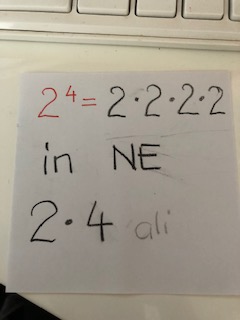 2⁴ = 2·2·2·2
in NE
2·4 ali